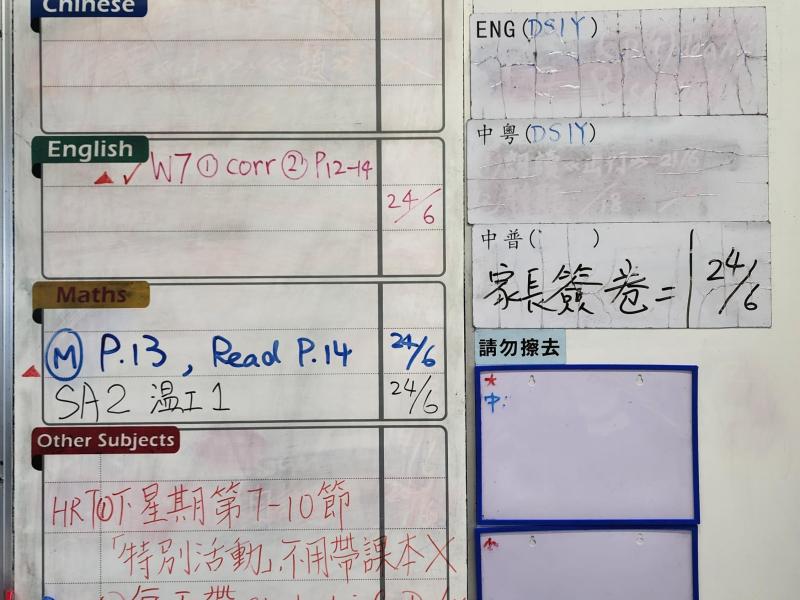 Chinese
English
W7 ① corr ② P.12-14
24/6
Maths
Ⓜ P.13 , Read P.14 24/6
SA2 温工1 24/6
Other Subjects
HR ① 下星期第7-10節
「特別活動」,不用帶課本
ENG (DS1Y)
中粵(DS1Y)
中普( )
家長簽卷二 24/6
請勿擦去
中: